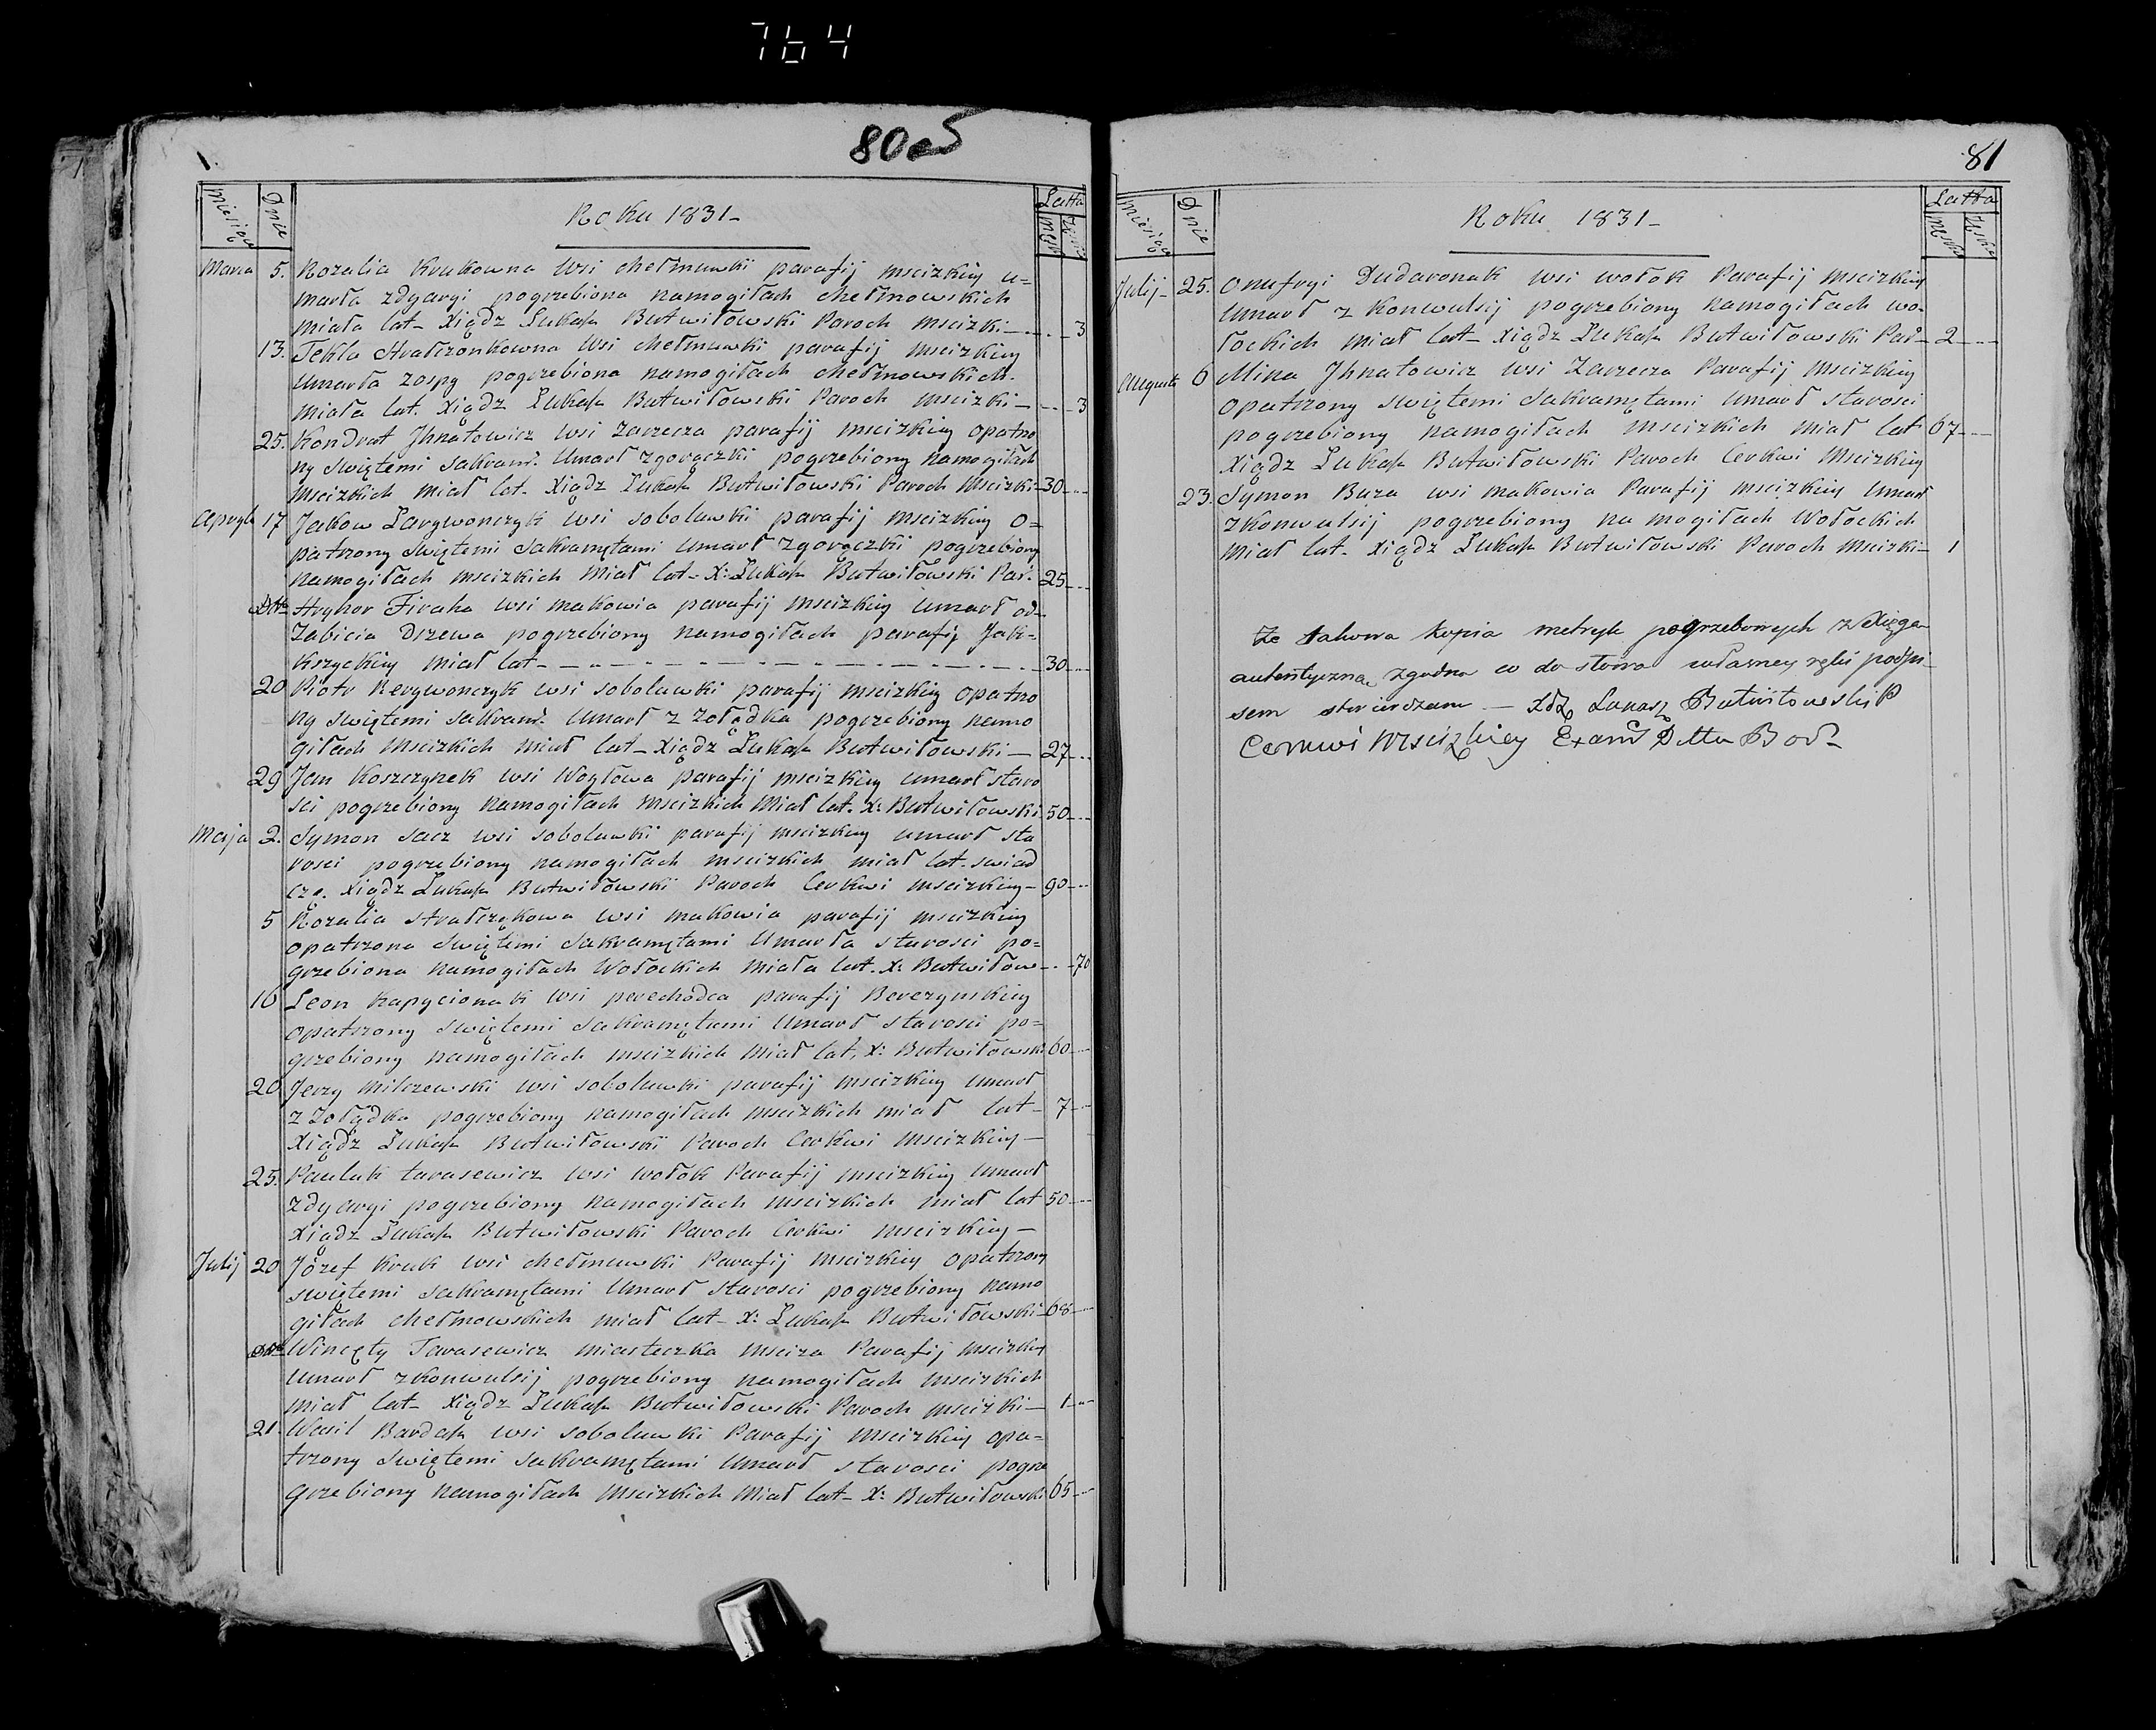 764
80 об
Miesiąc Dnie Roku 1831- Latta
męsk żeńsk
Marca 5. Rozalia Krukowna wsi chełmuwki parafij mscizkiey u=
marła zdyaryi pogrzebiona namogiłach chełmowskich
miała lat- Xiądz Łukasz Butwiłowski Paroch mscizki - 3
13. Tekla Strałczonkowna wsi chełmuwki parafij mscizkiey
Umarła zospy pogrzebiona namogiłach chełmowskich.
miała lat. Xiądz Łukasz Butwiłowski Paroch mscizki - 3
25. Kondrat Jhnatowicz wsi Zarzecza parafij mscizkiey opatrzo
ny swiętemi sakram. Umarł zgorączki pogrzebiony namogiłach
mscizkich miał lat. Xiądz Łukasz Butwiłowski Paroch Mscizki 30
Apryla 17 Jakow Ławrywonczyk wsi sobolewki parafij mscizkiey o=
patrzony swiętemi sakramętami umarł zgorączki pogrzebiony
namogiłach mscizkich Miał lat- X: Łukasz Butwiłowski Par. 25
Ditto Hryhor Firaha wsi makowia parafij mscizkiey Umarł od
Zabicia Drzewa pogrzebiony namogiłach parafij Juk-
kszyckiey miał lat - 30
20 Piotr Rerywonczyk wsi sobolewki parafij mscizkiey opatrzo
ny swiętemi sakram. Umarł z Żołądka pogrzebiony namo
giłach mscizkich miał lat- Xiądz Łukasz Butwiłowski - 27
29 Jan Koszczynek wsi Woytowa parafij mscizkiey umarł staro
sci pogrzebiony namogiłach mscizkich Miał lat. X: Butwiłowski 50
Maja 2. Symon sacz wsi sobolewki parafij mscizkiey umarł sta
rosci pogrzebiony namogiłach mscizkich miał lat. swiad
czę. Xiądz Łukasz Butwiłowski Paroch Cerkwi mscizkiey - 90
5 Rozalia strałczękowa wsi makowia parafij mscizkiey
opatrzona swiętemi sakramętami Umarła starosci po=
grzebiona namogiłach Wołockich miała lat. X: Butwiłow - 70
16 Leon Kapycionak wsi perechodca parafij Berezynskiey
opatrzony swiętemi sakramętami Umarł starosci po=
grzebiony namogiłach mscizkich Miał lat, X: Butwiłowski 60
20 Jerzy Milczewski wsi sobolewki parafij mscizkiey umarł
z Żołądka pogrzebiony namogiłach mscizkich miał lat- 7
Xiądz Łukasz Butwiłowski Paroch Cerkwi Mscizkiey -
25. Pauluk tarasewicz wsi wołok Parafij mscizkiey umarł
zdyaryi pogrzebiony namogiłach mscizkich miał lat 50
Xiądz Łukasz Butwiłowski Paroch Cerkwi mscizkiey -
Julij 20 Józef Kruk wsi chełmuwki Parafij mscizkiey opatrzony
swiętemi sakramętami Umarł starosci pogrzebiony namo
giłach chełmowskich miał lat- X: Łukasz Butwiłowski 68
Ditto Wincęty Tarasewicz miasteczka Msciza Parafij mscizkiey
Umarł zkonwulsij pogrzebiony namogiłach mscizkich
miał lat- Xiądz Łukasz Butwiłowski Paroch mscizki - 1
21. Wasil Bardasz wsi sobolewki Parafij Mscizkiey opa=
trzony swiętemi sakramętami umarł starosci pogrze
grzebiony namogiłach Mscizkich Miał lat- X: Butwiłowski 65
81
Miesiąc Dnie Roku 1831- Latta
męsk żeńsk
Julij- 25. Onufryi Dudaronak wsi wołok Parafij mscizkiey
Umarł z Konwulsij pogrzebiony namogiłach wo-
łockich miał lat- Xiądz Łukasz Butwiłowski Par- 2
Augusta 6 Mina Jhnatowicz wsi Zarzecza Parafij Mscizkiey
opatrzony swiętemi sakramętami umarł starosci
pogrzebiony namogiłach mscizkich miał lat 67
Xiądz Łukasz Butwiłowski Paroch Cerkwi Mscizkiey
23. Symon Buza wsi makowia Parafij mscizkiey umarł
zkonwulsij pogrzebiony na mogiłach Wołockich
miał lat- Xiądz Łukasz Butwiłowski Paroch mscizki - 1
Że takowa kopia metryk pogrzebowych z Xięgą
autentyczną zgodna co do słowa własney ręki podpi-
sem stwierdzam - Xdz Łukasz Butwiłowski P
Cerkwi Mscizkiey